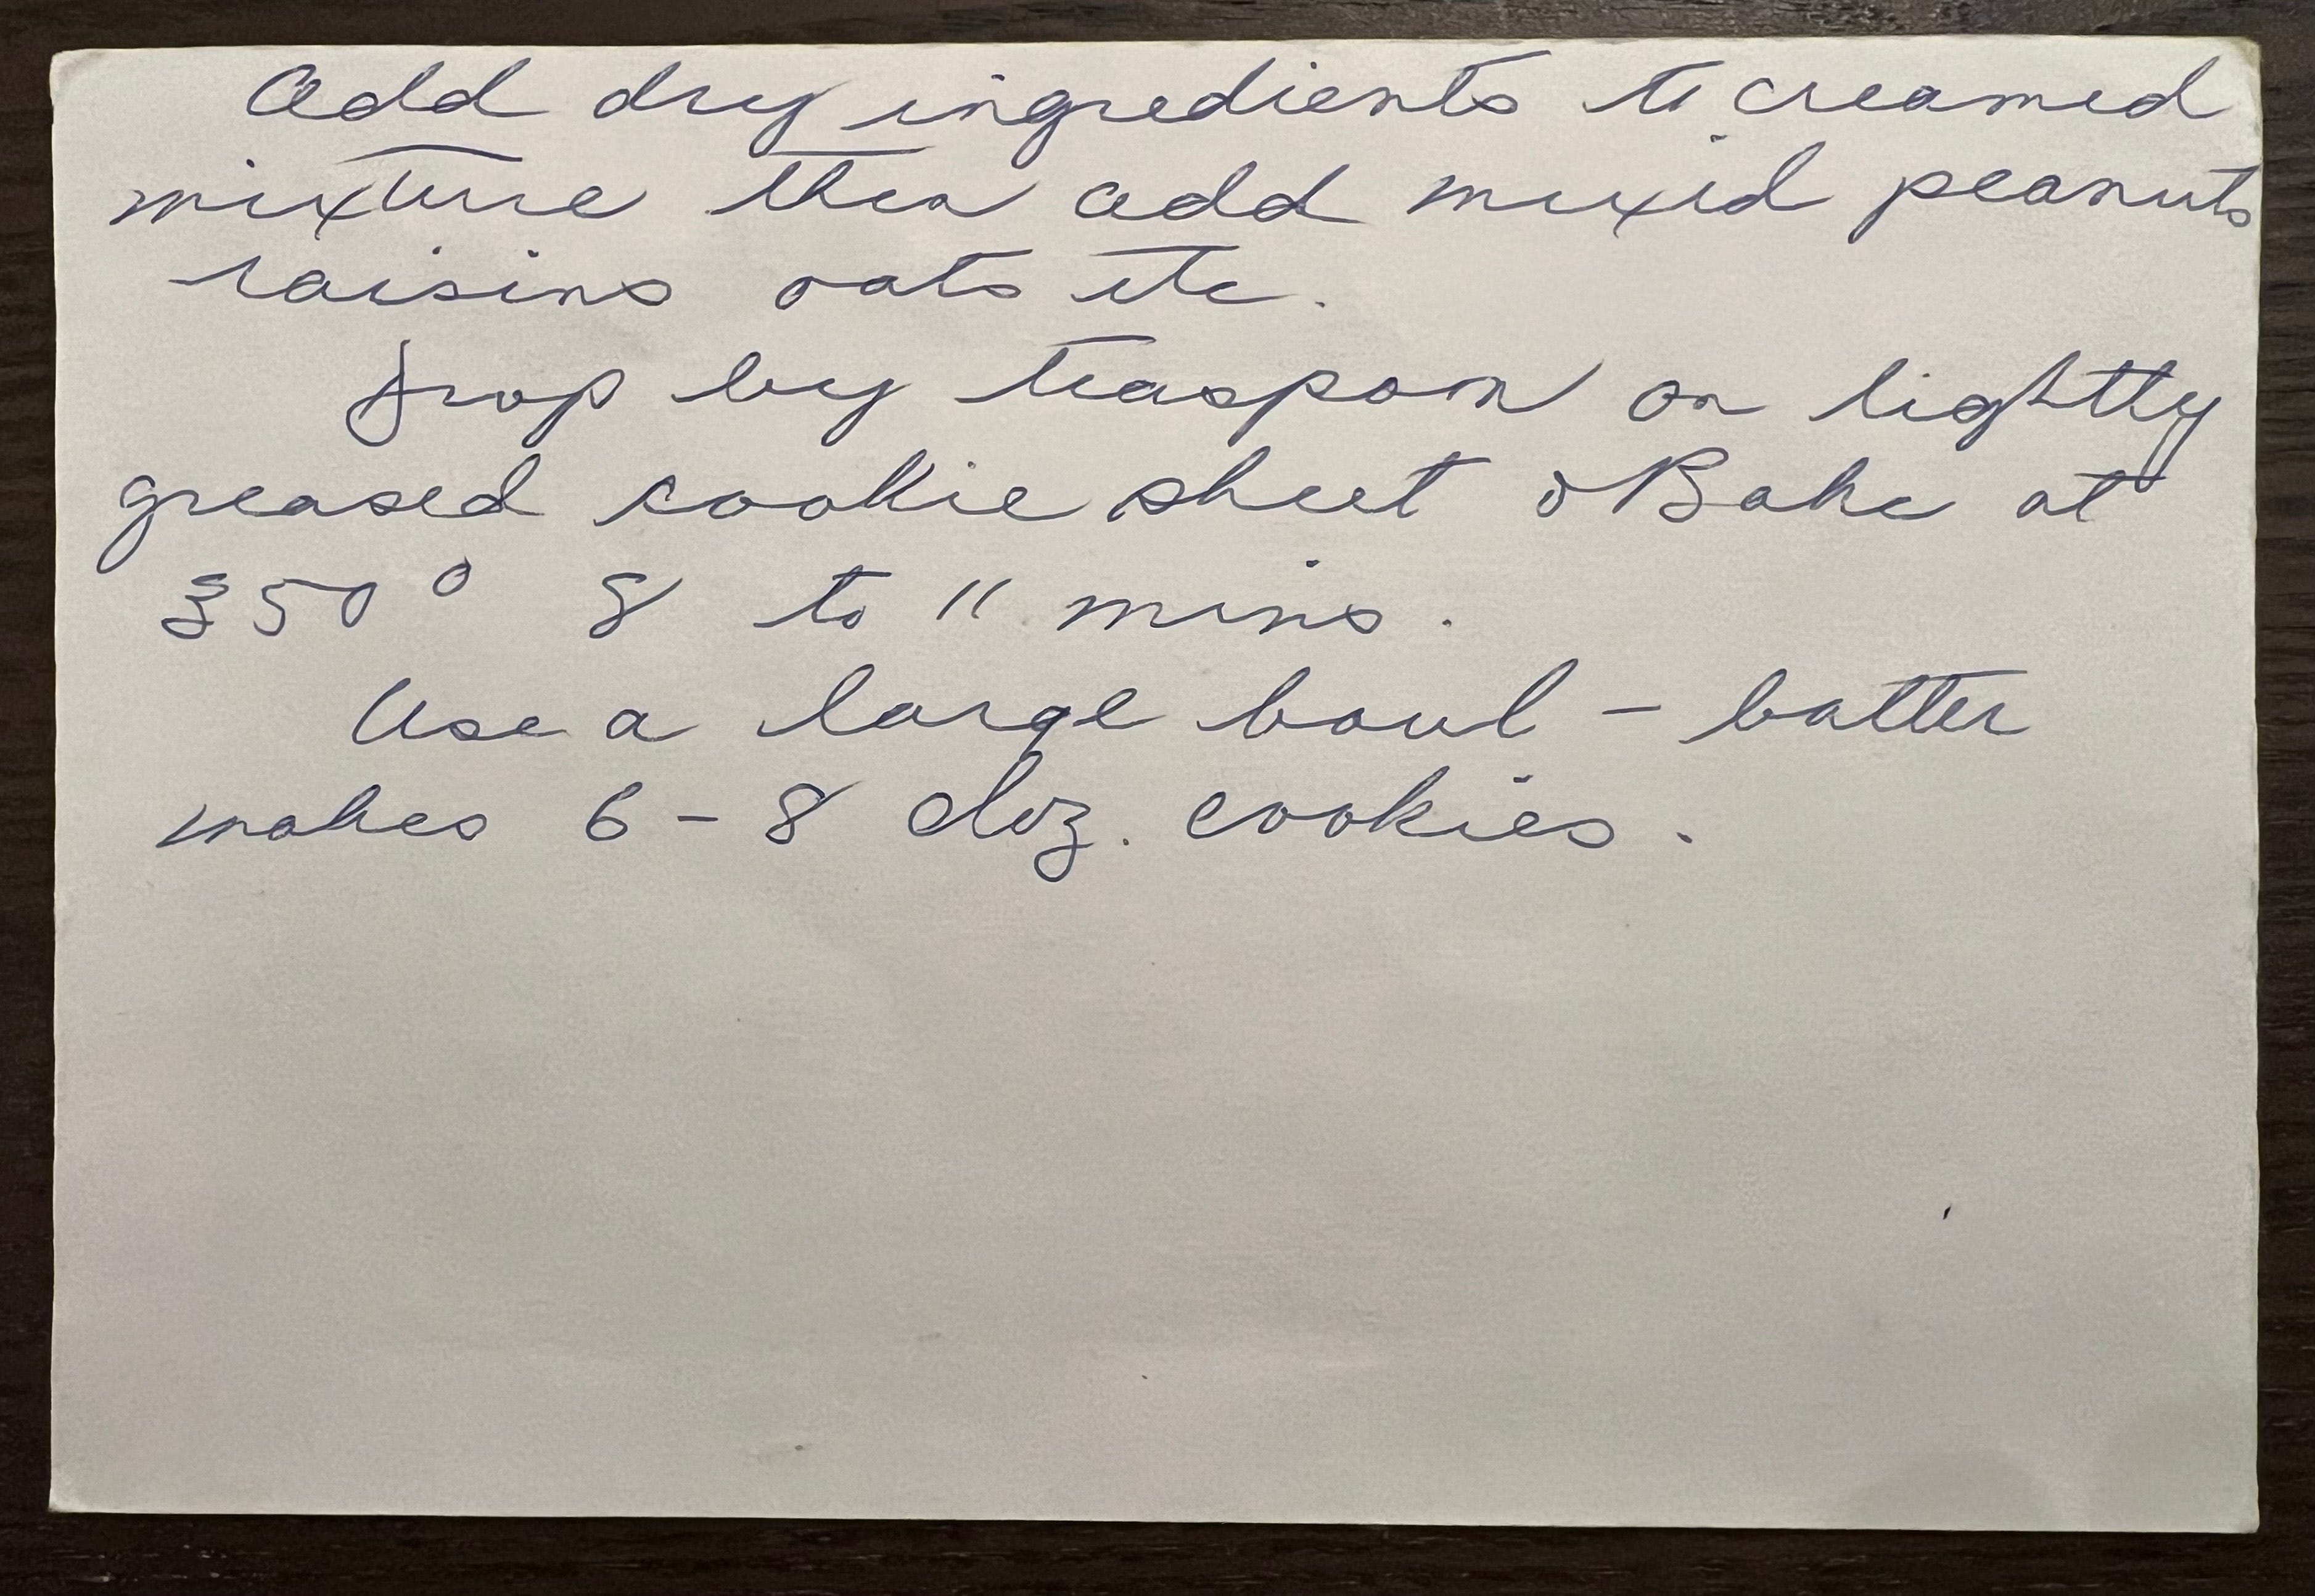 Add dry ingredients to creamed
mixture then add mixed peanuts
raisins oats etc.
Drop by teaspoon on lightly
greased cookie sheet & Bake at
350° 8 to 11 mins.
Use a large bowl - batter
makes 6-8 doz. cookies.